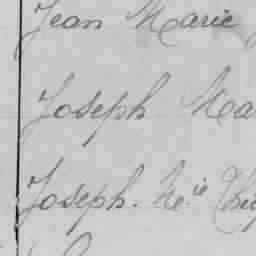 Jean Marie
Joseph Ma
Joseph. M.ie